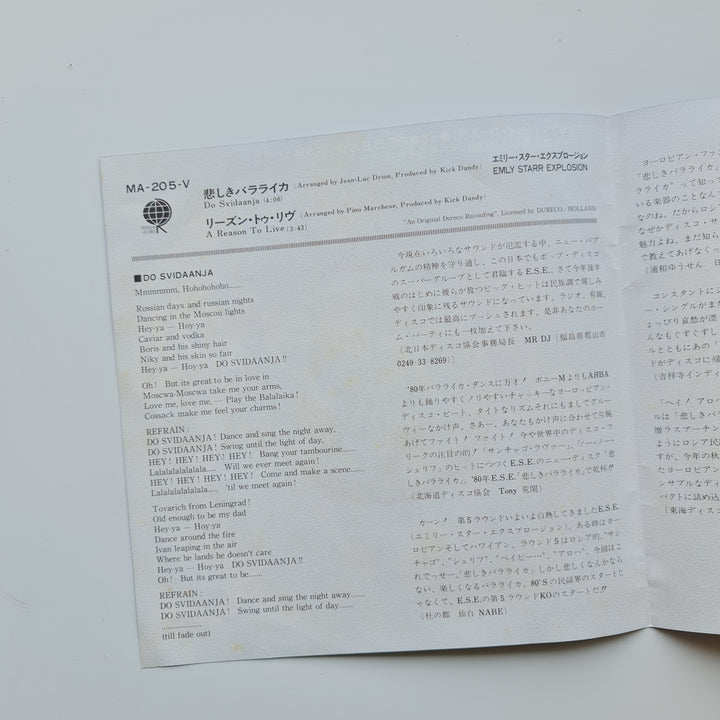 MA-205-V
悲しきバラライカ (Arranged by Jean-Luc Drion, Produced by Kick Dandy)
Do Svidaanja (4:06)
リーズン・トゥ・リヴ (Arranged by Pino Marchese, Produced by Kick Dandy)
A Reason To Live (3:43)
エミリー・スター・エクスプロージョン
EMLY STARR EXPLOSION
"An Original Dureco Recording" Licensed by DURECO/HOLLAND
■DO SVIDAANJA
Mmmmmm, Hohohohoho......
Russian days and russian nights
Dancing in the Moscou lights
Hey-ya — Hoy-ya
Caviar and vodka
Boris and his shiny hair
Niky and his skin so fair
Hey-ya — Hoy-ya DO SVIDAANJA!!
Oh! But its great to be in love in
Moscwa-Moscwa take me your arms,
Love me, love me, — Play the Balalaika!
Cossack make me feel your charms!
REFRAIN:
DO SVIDAANJA! Dance and sing the night away,
DO SVIDAANJA! Swing until the light of day,
HEY! HEY! HEY! HEY! Bang your tambourine......
Lalalalalalalala..... Will we ever meet again!
HEY! HEY! HEY! HEY! Come and make a scene......
Lalalalalalalala..... 'til we meet again!
Tovarich from Leningrad!
Old enough to be my dad
Hey-ya — Hoy-ya
Dance around the fire
Ivan leaping in the air
Where he lands he doesn't care
Hey-ya — Hoy-ya DO SVIDAANJA!!
Oh! But its great to be......
REFRAIN:
DO SVIDAANJA! Dance and sing the night away......
DO SVIDAANJA! Swing until the light of day......
..................
(till fade out)
今現在いろいろなサウンドが氾濫する中、ニュー・バブ
ルガムの精神を守り通し、この日本でもポップ・ディスコ
のスーパーグループとして君臨するE.S.E.、さて今年後半
戦のはじめに彼らが放つビッグ・ヒットは民族調で親しみ
やすく印象に残るサウンドになっています。ラジオ、有線、
ディスコでは最高にプッシュされます。是非あなたのホー
ム・パーティにも一枚加えて下さい。
〔北日本ディスコ協会事務局長 MR DJ (福島県郡山市
0249-33-8269)〕
'80年バラライカ・ダンスに万才! ボニーMよりもABBA
よりも踊りやすくノリやすいチャッキーなヨーロッピアン・
ディスコ・ビート。タイトなリズムそれにもましてグルー
ヴィーなかけ声。さあー、あなたもかけ声に合わせて奇振
あげてファイト! ファイト! 今や世界中のディスコ・フ
リークの注目の的!「サンチャゴ・ラヴァー」、「シー・ノー・
シェリフ」のヒットにつづくE.S.E.のニュー・ディスク「悲
しきバラライカ」。'80年E.S.E.「悲しきバラライカ」で乾杯!!
(北海道ディスコ協会 Tony 荒関)
カーン! 第5ラウンドいよいよ白熱してきましたE.S.E.
(エミリー・スター・エクスプロージョン)。ある時はヨー
ロピアンそしてハワイアン、ラウンド5はロシア的。"サン
チャゴ"、"シェリフ"、"ベイビー…"、"アロハ"、今回はこ
れでっせー。「悲しきバラライカ」しかし悲しくなんかなら
ない、楽しくなるバラライカ。80'Sの民謡界のスタートじ
ゃなくて、E.S.E.の第5ラウンドKOのスタートだ!!
(杜の都 仙台 NABE)
ヨーロピアン・ファン
「悲しきバラライカ」
ラライカ"って知っ
いる楽器のことなん
なのね。だからロシ
なぜかディスコ・
魅力よね。まだ知ら
で教えてあげなくっ
(浦和ゆうせん 日
コンスタントにシ
ー・シングルがま
ょっぴり哀愁が漂
んなもぐすぐすし
ルとともにあの「
ドがディスコに帰
(吉祥寺インディ
「ヘイ! アロハ
ルは「悲しきバラ
憎ラスプーチン
ようにロシア民
すが、今年の秋
たヨーロピアン
ンサブルなディ
パクトに詰め込
(東海ディスコ